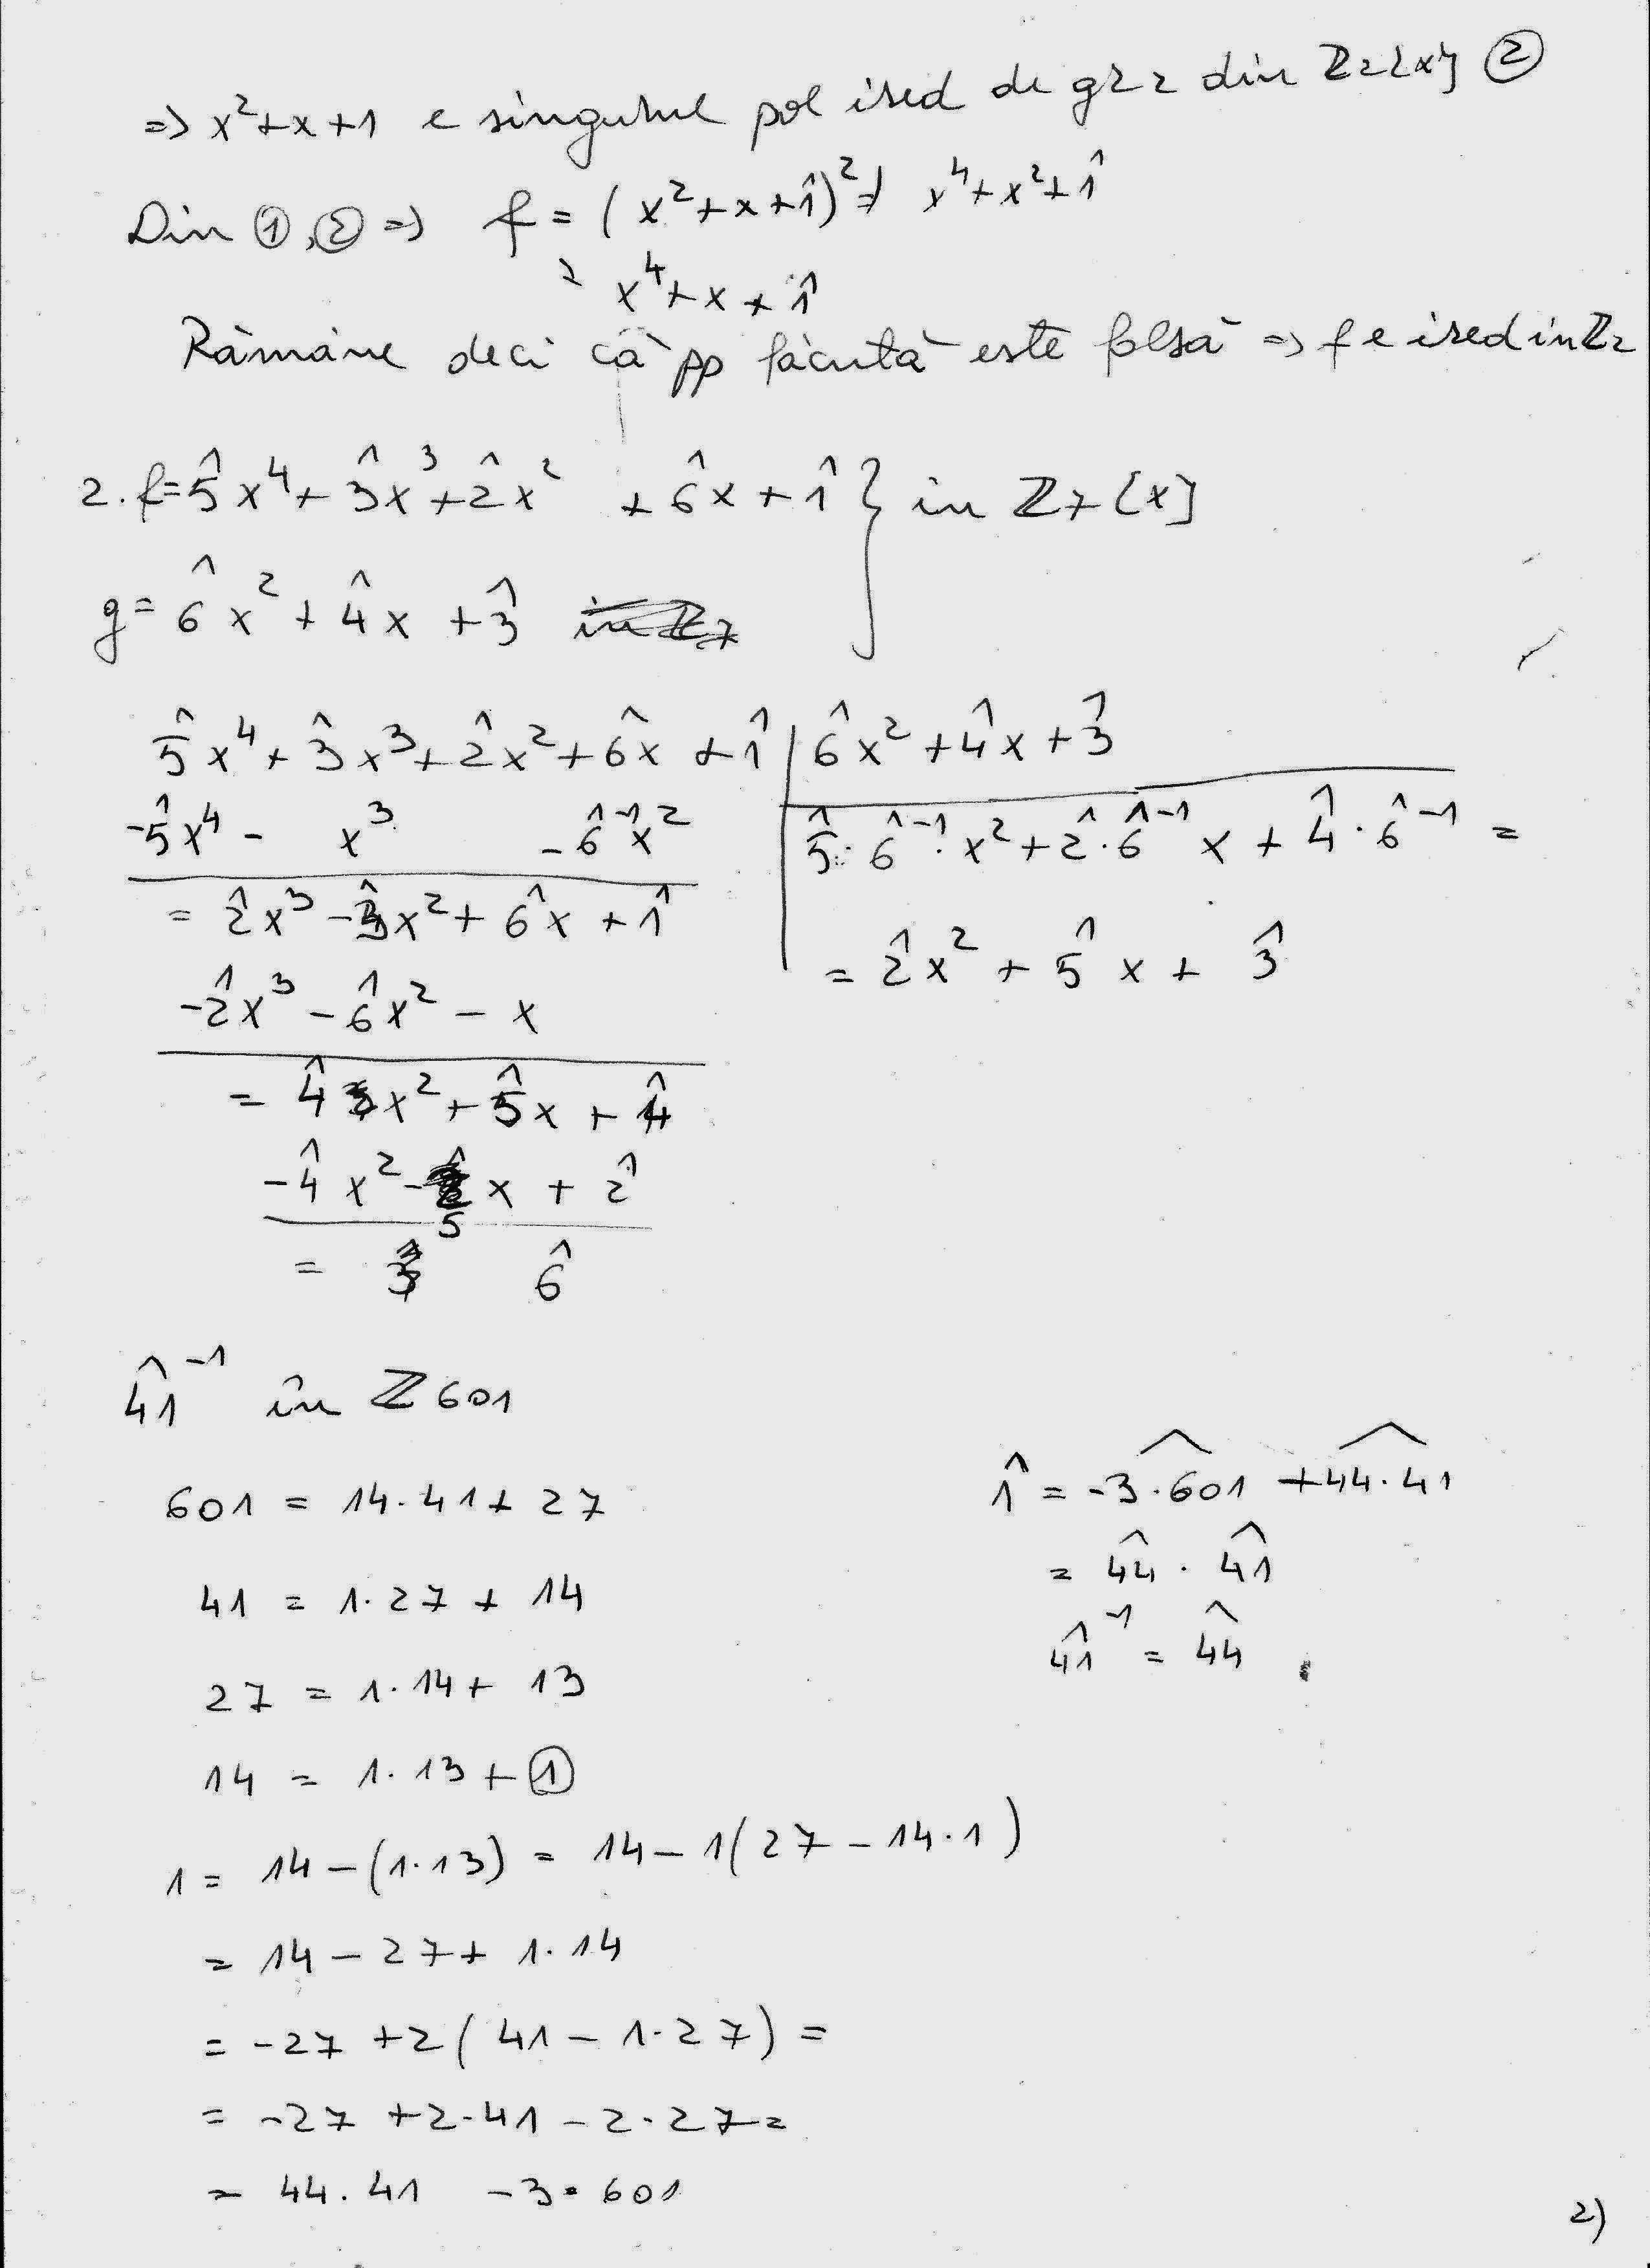 => x²+x+1 e singurul pol ired de gr 2 din ℤ₂[x] ②
Din ①,② => f = (x²+x+1̂)² = x⁴+x²+1̂
= x⁴+x+1̂
Rămâne deci că pp făcută este falsă => f e ired in ℤ₂
2. f=5̂x⁴+3̂x³+2̂x² +6̂x+1̂ } in ℤ₇[x]
g=6̂x²+4̂x+3̂
5̂x⁴+3̂x³+2̂x²+6̂x+1̂ | 6̂x²+4̂x+3̂
-5̂x⁴- x³ -6̂⁻¹x² | 5̂·6̂⁻¹·x²+2̂·6̂⁻¹x+4̂·6̂⁻¹ =
= 2̂x³-3̂x²+6̂x+1̂ | = 2̂x²+5̂x+3̂
-2̂x³-6̂x²-x
= 4̂x²+5̂x+1̂
-4̂x²-5x+2̂
= 6̂
4̂1̂⁻¹ în ℤ601
601 = 14·41+27
41 = 1·27+14
27 = 1·14+13
14 = 1·13+①
1= 14-(1·13) = 14-1(27-14·1)
= 14-27+1·14
= -27+2(41-1·27) =
= -27+2·41-2·27=
= 44·41 -3·601
1̂ = -3·6̂0̂1̂ +4̂4̂·4̂1̂
= 4̂4̂·4̂1̂
4̂1̂⁻¹ = 4̂4̂
2)